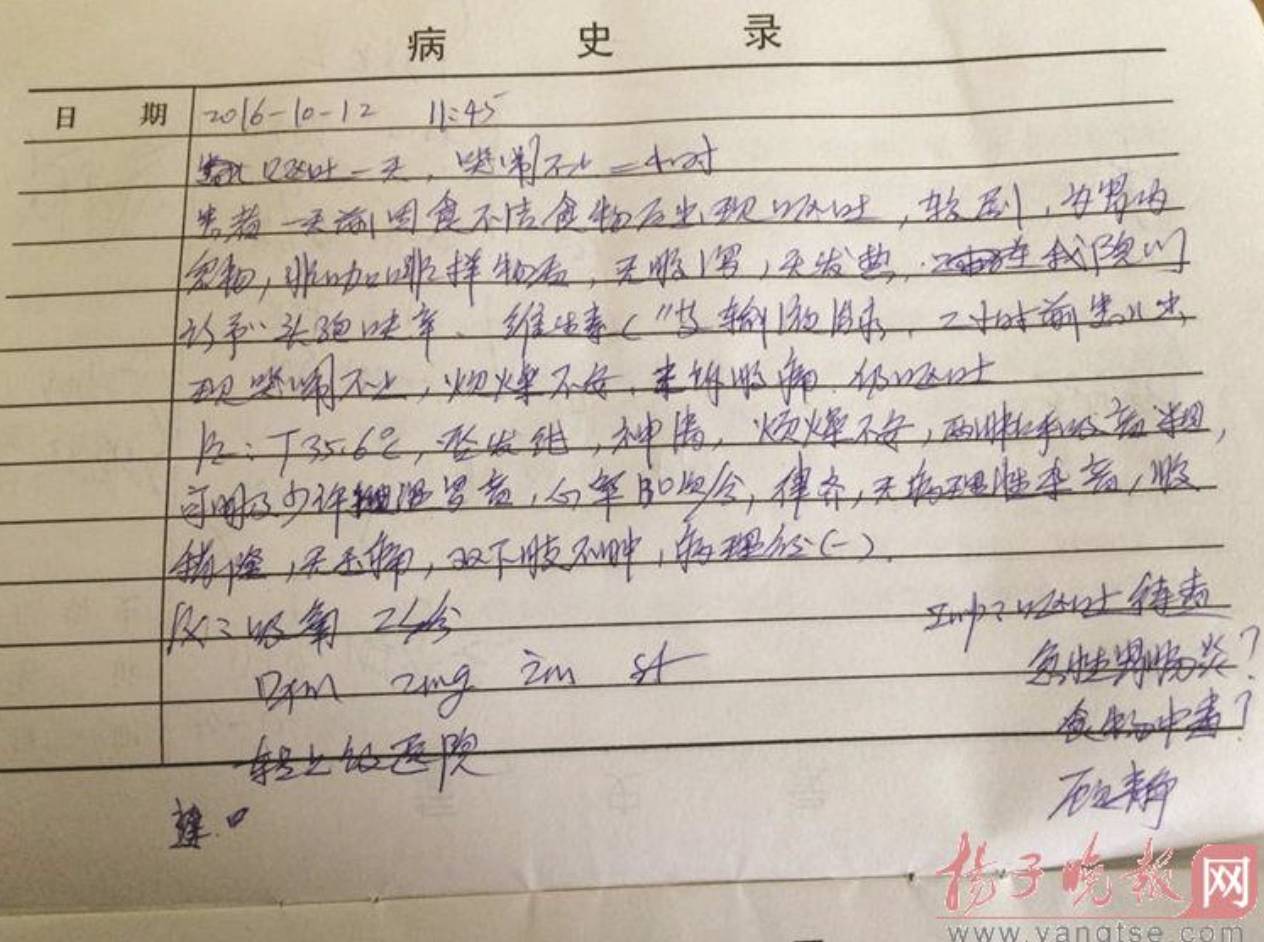 病 史 录
日 期 2016-10-12 11:45
呕吐一天，哭闹不止二小时
患者一天前因食不洁食物后出现呕吐，较剧，为胃内
容物，非咖啡样物质，无腹泻，无发热，在我院门
诊予头孢呋辛、维生素C等输液，二小时前患儿出
现哭闹不止，烦燥不安，未诉腹痛，仍呕吐
T35.6℃，唇发绀，神清，烦燥不安，两肺呼吸音粗，
可闻及少许湿罗音，心率 次/分，律齐，无病理性杂音，腹
稍隆，无压痛，双下肢不肿，病理征(-)。
Rx：吸氧 2L/分 Imp：呕吐待查
2mg im st 急性胃肠炎？
转上级医院 食物中毒？
扬子晚报网
www.yangtse.com